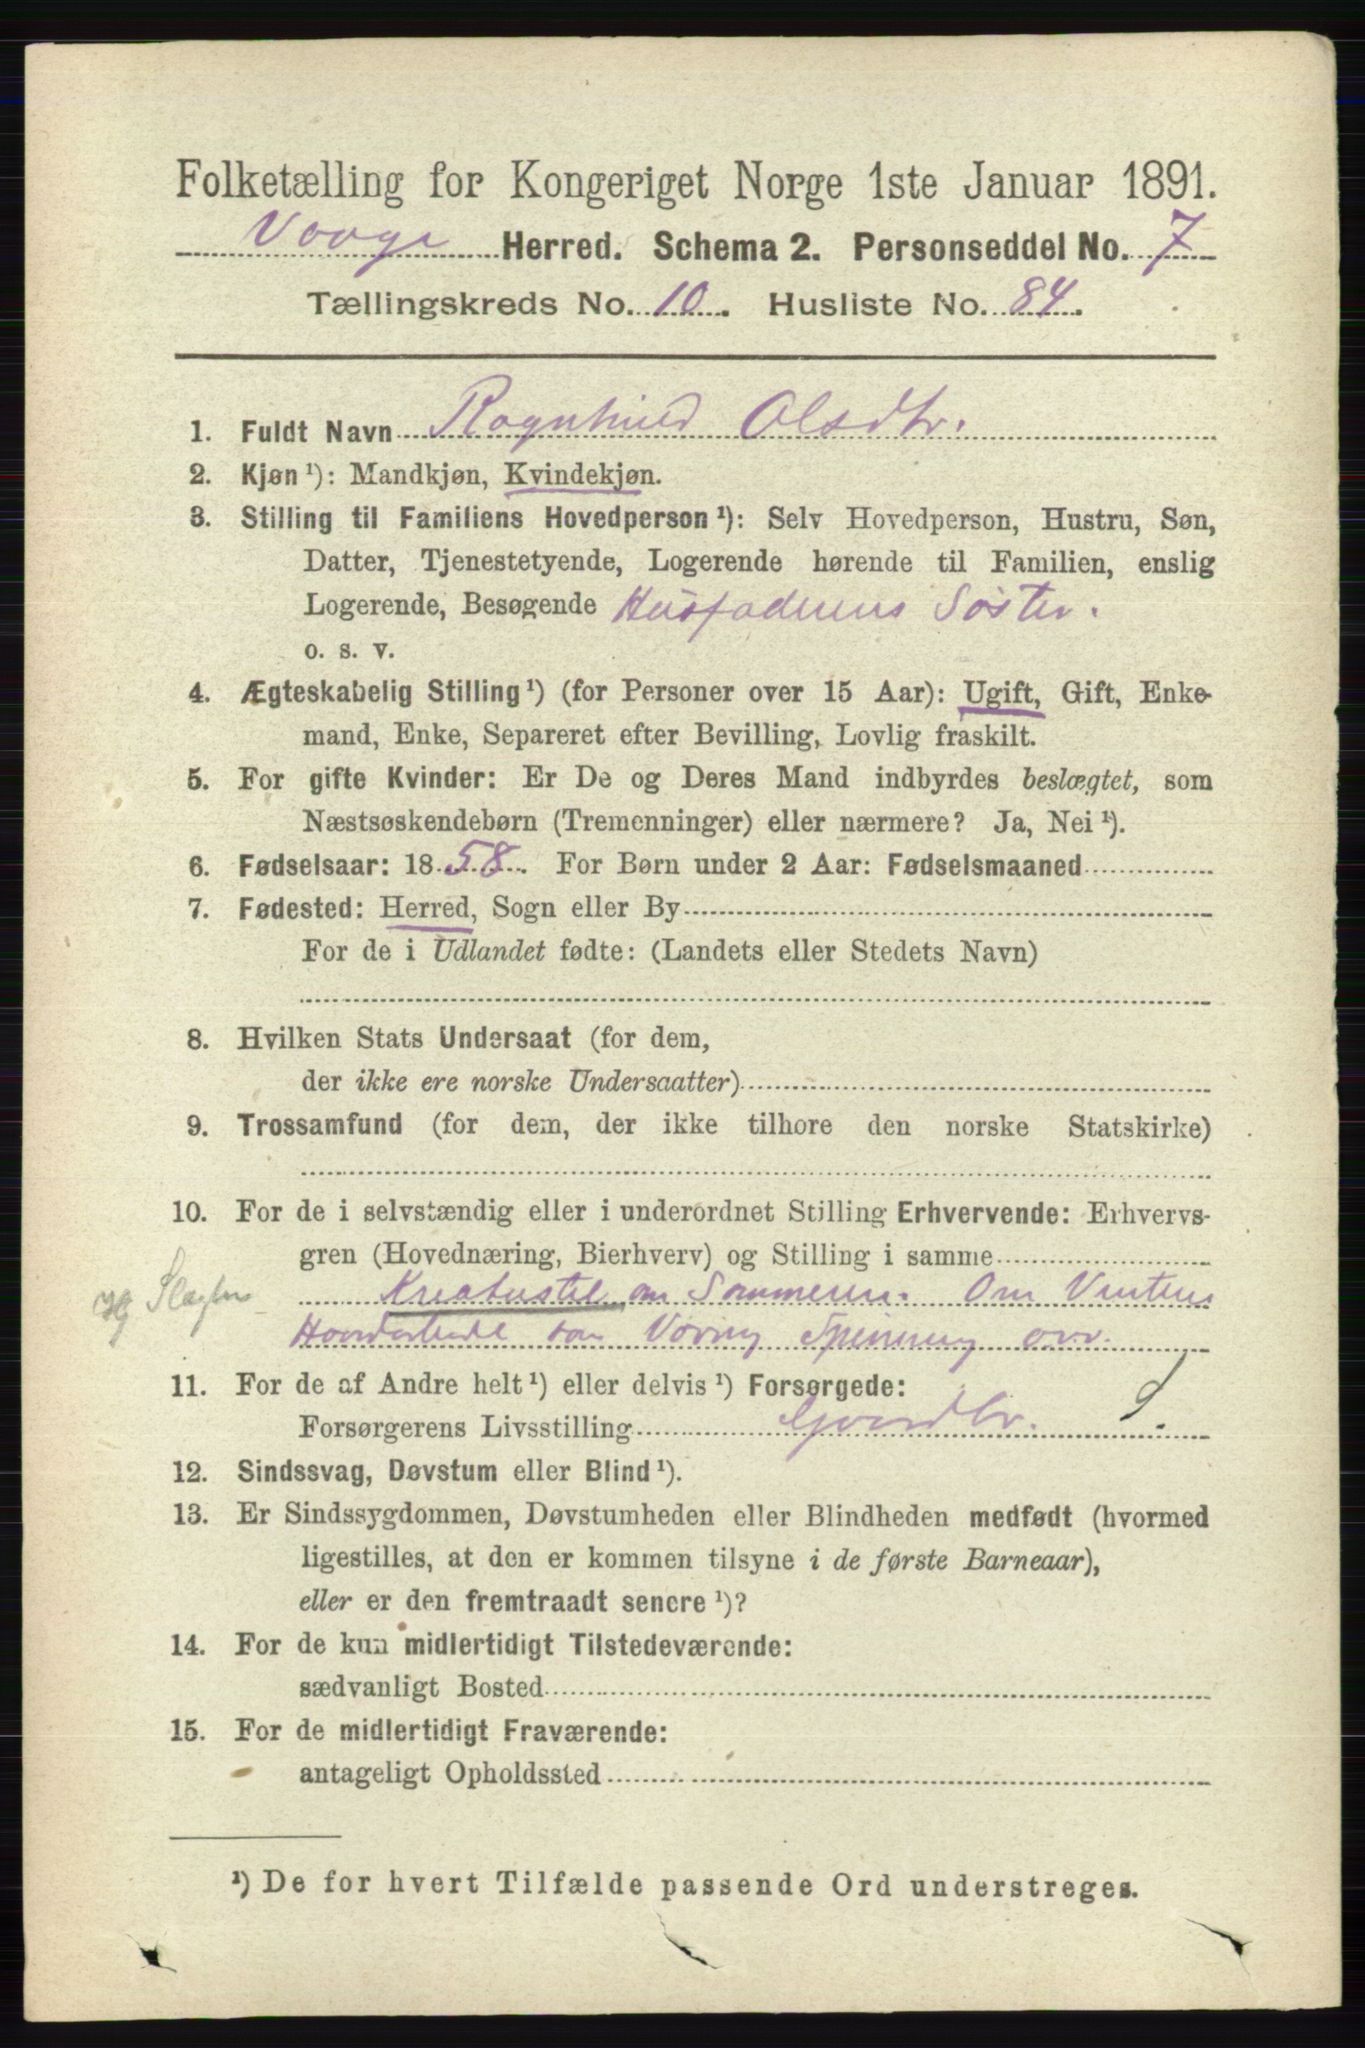 Folketælling for Kongeriget Norge 1ste Januar 1891.
Vaage Herred. Schema 2. Personseddel No. 7
Tællingskreds No. 10. Husliste No. 84.
1. Fuldt Navn Ragnhild Olsdtr.
2. Kjøn ¹): Mandkjøn, Kvindekjøn.
3. Stilling til Familiens Hovedperson ¹): Selv Hovedperson, Hustru, Søn,
Datter, Tjenestetyende, Logerende hørende til Familien, enslig
Logerende, Besøgende Husfaderens Søster.
o. s. v.
4. Ægteskabelig Stilling ¹) (for Personer over 15 Aar): Ugift, Gift, Enke-
mand, Enke, Separeret efter Bevilling, Lovlig fraskilt.
5. For gifte Kvinder: Er De og Deres Mand indbyrdes beslægtet, som
Næstsøskendebørn (Tremenninger) eller nærmere? Ja, Nei ¹).
6. Fødselsaar: 1858. For Børn under 2 Aar: Fødselsmaaned
7. Fødested: Herred, Sogn eller By
For de i Udlandet fødte: (Landets eller Stedets Navn)
8. Hvilken Stats Undersaat (for dem,
der ikke ere norske Undersaatter)
9. Trossamfund (for dem, der ikke tilhøre den norske Statskirke)
10. For de i selvstændig eller i underordnet Stilling Erhvervende: Erhvervs-
gren (Hovednæring, Bierhverv) og Stilling i samme
Kreaturstel om Sommeren. Om Vinteren
Haandarbeide som Væving Spinning osv.
11. For de af Andre helt ¹) eller delvis ¹) Forsørgede:
Forsørgerens Livsstilling Gaardbr. S.
12. Sindssvag, Døvstum eller Blind ¹).
13. Er Sindssygdommen, Døvstumheden eller Blindheden medfødt (hvormed
ligestilles, at den er kommen tilsyne i de første Barneaar),
eller er den fremtraadt senere ¹)?
14. For de kun midlertidigt Tilstedeværende:
sædvanligt Bosted
15. For de midlertidigt Fraværende:
antageligt Opholdssted
¹) De for hvert Tilfælde passende Ord understreges.